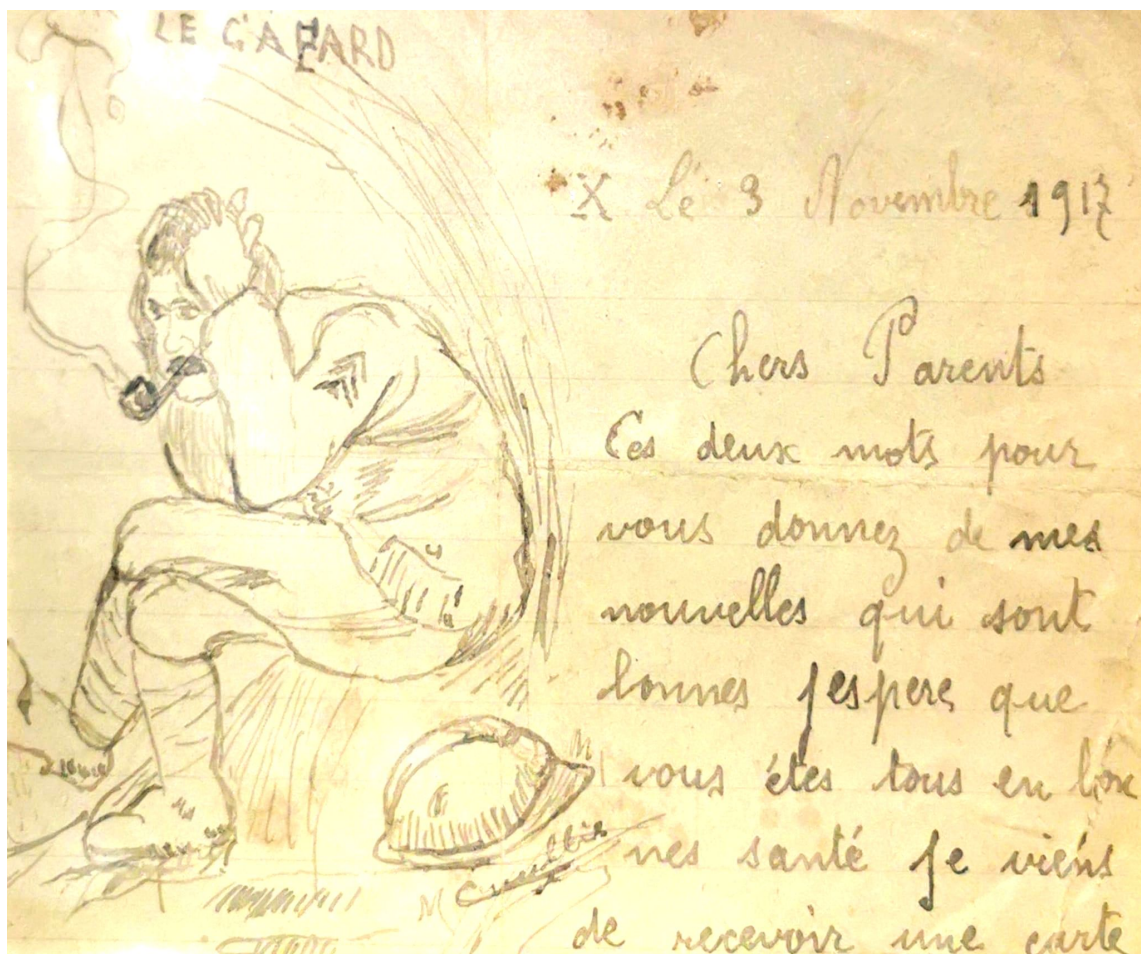 LE CAFARD
X Le 3 Novembre 1917
Chers Parents
Ces deux mots pour
vous donnez de mes
nouvelles qui sont
bonnes j'espere que
vous êtes tous en bon
nes santé je viens
de recevoir une carte
M